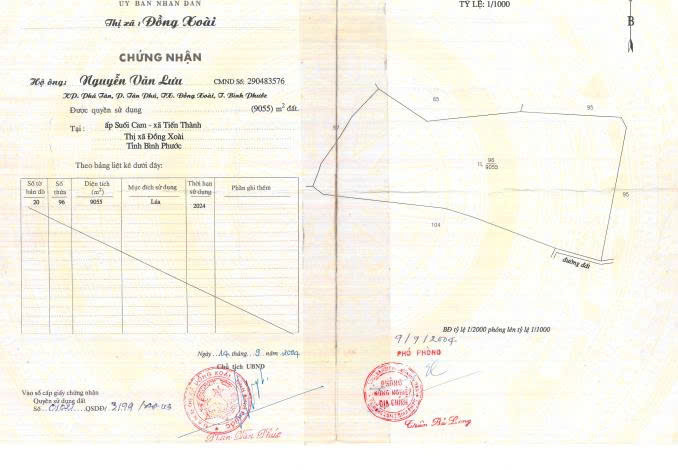 ỦY BAN NHÂN DÂN
Thị xã : Đồng Xoài
CHỨNG NHẬN
Hộ ông: Nguyễn Văn Lưu CMND Số: 290483576
KP. Phú Tân, P. Tân Phú, TX. Đồng Xoài, T. Bình Phước
Được quyền sử dụng (9055) m² đất
Tại : ấp Suối Cam - xã Tiến Thành
Thị xã Đồng Xoài
Tỉnh Bình Phước
Theo bảng liệt kê dưới đây:
Số tờ bản đồ Số thửa Diện tích (m²) Mục đích sử dụng Thời hạn sử dụng Phần ghi thêm
20 96 9055 Lúa 2024
Ngày 14 tháng 9 năm 2004
Chủ tịch UBND
Phan Văn Phúc
Vào sổ cấp giấy chứng nhận
Quyền sử dụng đất
Số QSDĐ/ 3199
TỶ LỆ: 1/1000
B
65
95
97
96
9055
95
104
đường đất
BĐ tỷ lệ 1/2000 phóng lên tỷ lệ 1/1000
9/9/2004
PHÓ PHÒNG
PHÒNG
NÔNG NGHIỆP
ĐỊA CHÍNH
Trần Bá Long